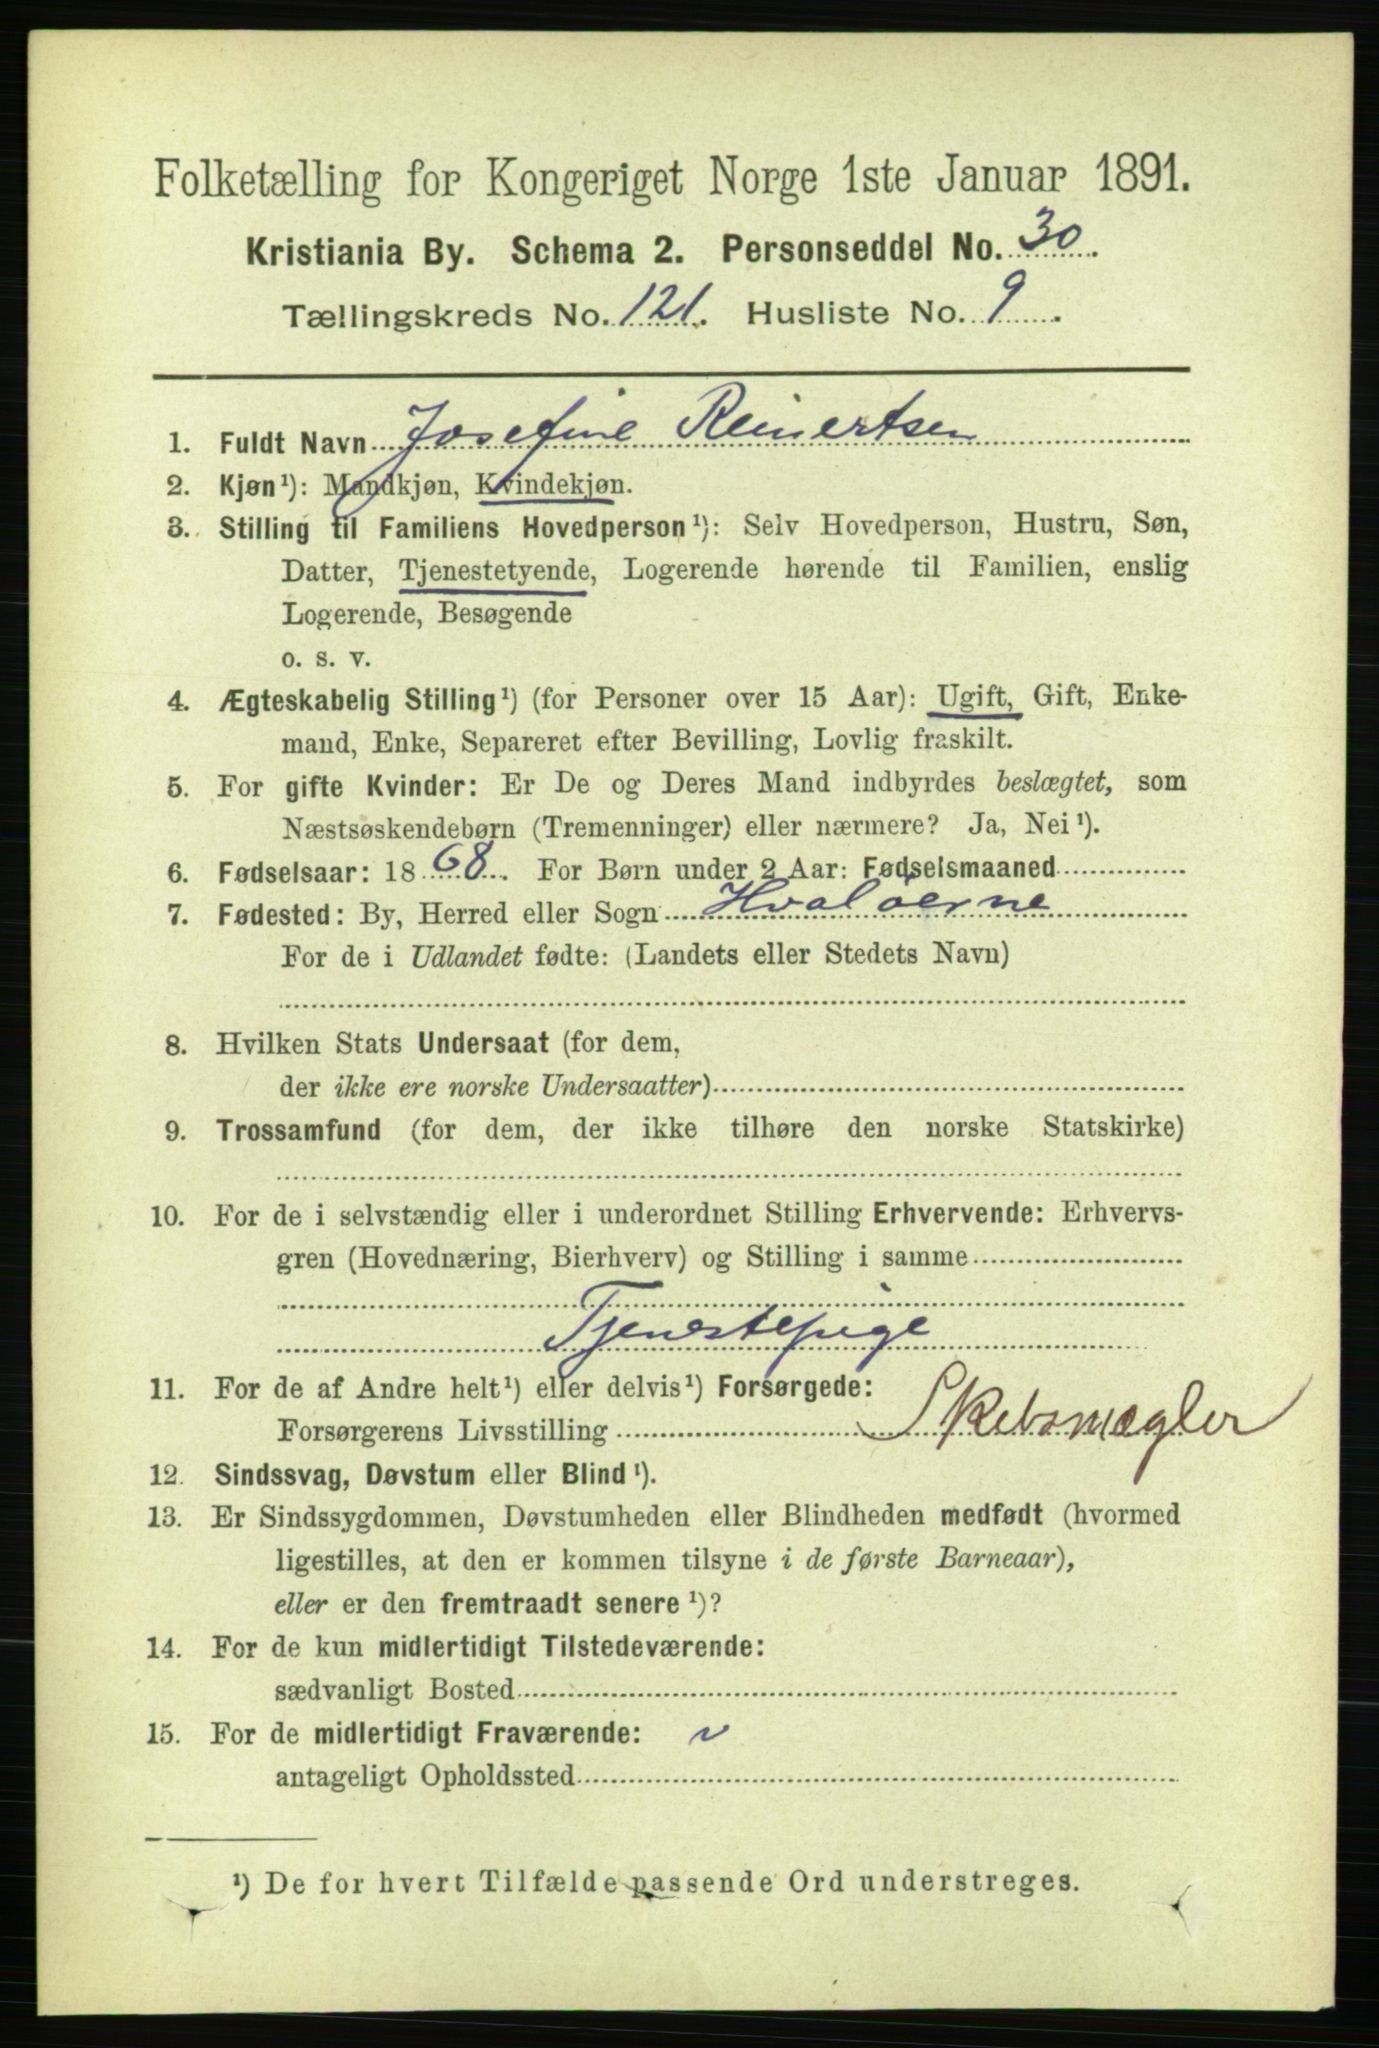 Folketælling for Kongeriget Norge 1ste Januar 1891.
Kristiania By. Schema 2. Personseddel No. 30.
Tællingskreds No. 121. Husliste No. 9.
1. Fuldt Navn Josefine Reinertsen
2. Kjøn¹): Mandkjøn, Kvindekjøn.
3. Stilling til Familiens Hovedperson¹): Selv Hovedperson, Hustru, Søn,
Datter, Tjenestetyende, Logerende hørende til Familien, enslig
Logerende, Besøgende
o. s. v.
4. Ægteskabelig Stilling¹) (for Personer over 15 Aar): Ugift, Gift, Enke-
mand, Enke, Separeret efter Bevilling, Lovlig fraskilt.
5. For gifte Kvinder: Er De og Deres Mand indbyrdes beslægtet, som
Næstsøskendebørn (Tremenninger) eller nærmere? Ja, Nei¹).
6. Fødselsaar: 1868. For Børn under 2 Aar: Fødselsmaaned
7. Fødested: By, Herred eller Sogn Hvaløerne
For de i Udlandet fødte: (Landets eller Stedets Navn)
8. Hvilken Stats Undersaat (for dem,
der ikke ere norske Undersaatter)
9. Trossamfund (for dem, der ikke tilhøre den norske Statskirke)
10. For de i selvstændig eller i underordnet Stilling Erhvervende: Erhvervs-
gren (Hovednæring, Bierhverv) og Stilling i samme
Tjenestepige
11. For de af Andre helt¹) eller delvis¹) Forsørgede:
Forsørgerens Livsstilling Skibsmægler
12. Sindssvag, Døvstum eller Blind¹).
13. Er Sindssygdommen, Døvstumheden eller Blindheden medfødt (hvormed
ligestilles, at den er kommen tilsyne i de første Barneaar),
eller er den fremtraadt senere¹)?
14. For de kun midlertidigt Tilstedeværende:
sædvanligt Bosted
15. For de midlertidigt Fraværende:
antageligt Opholdssted
¹) De for hvert Tilfælde passende Ord understreges.